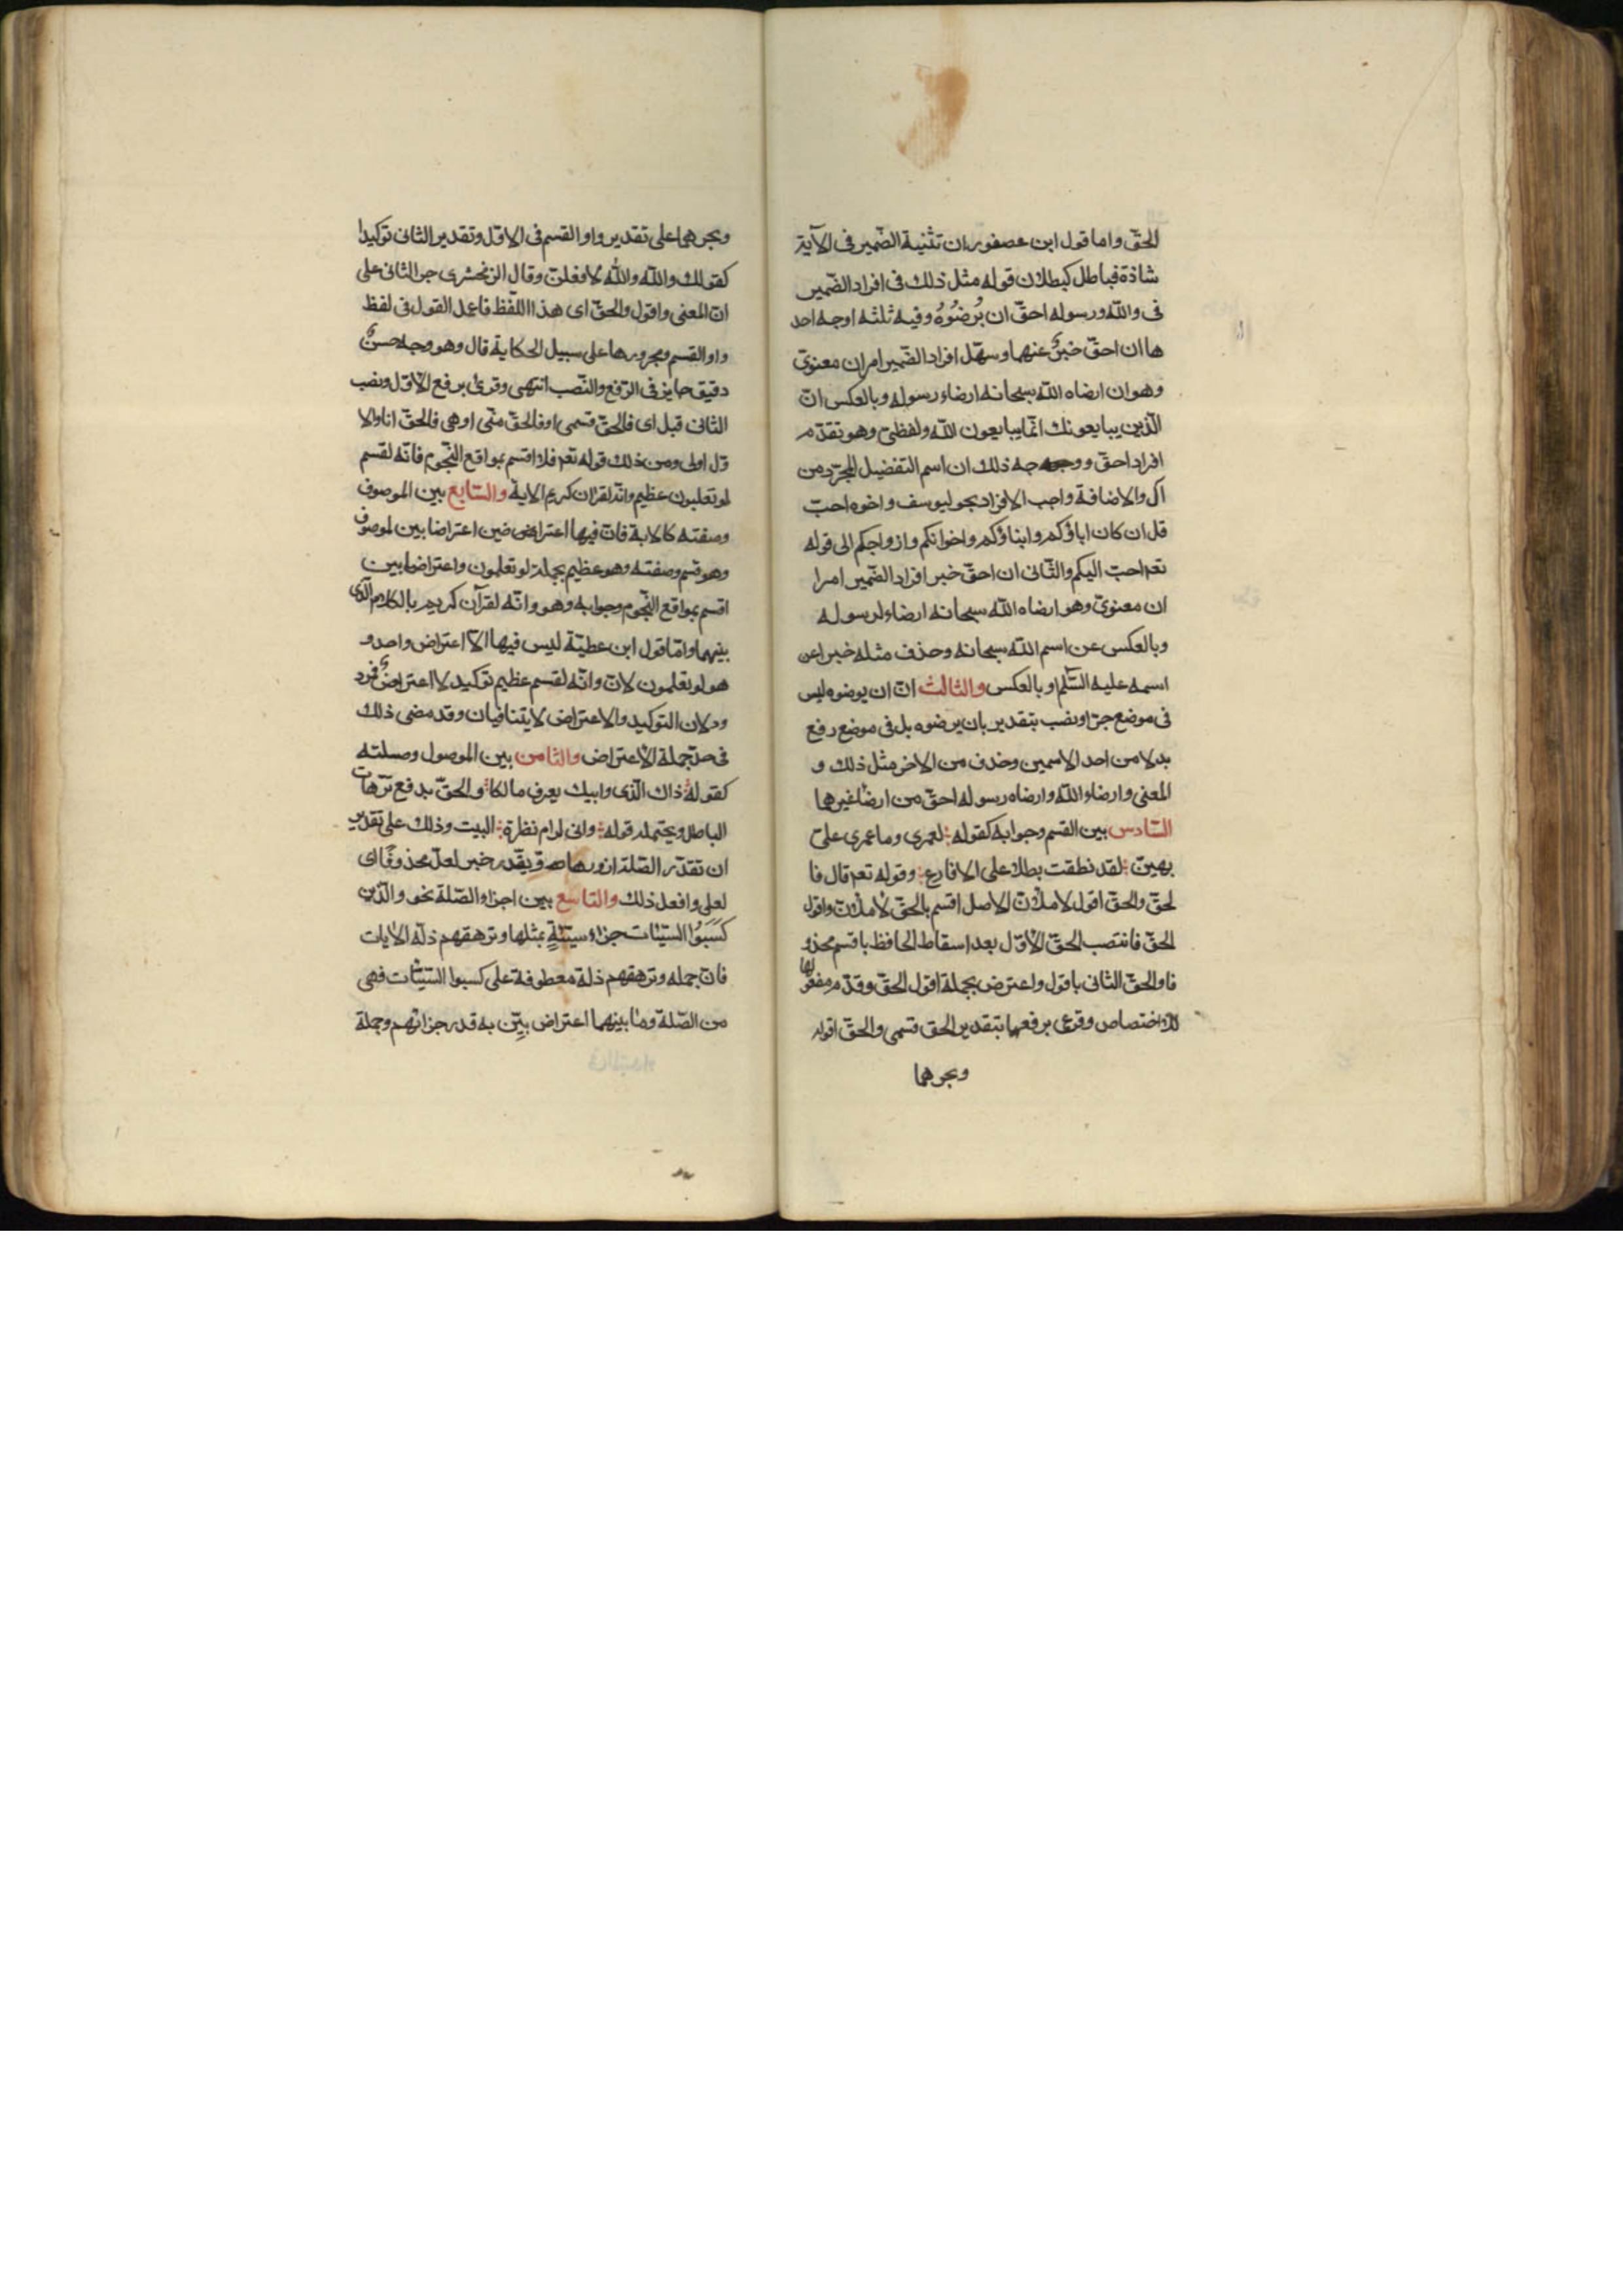 الحقّ واما قول ابن عصفور ان تثنية الضّمير فى الآية
شاذة فباطل كبطلان قوله مثل ذلك فى افراد الضّمير
فى والله ورسوله احقّ ان يُرضُوهُ وفيه ثلثه اوجه احد
ها ان احقّ خبرٌ عنهما وسهّل افراد الضّمير امران معنوىّ
وهو ان ارضاه الله سبحانه ارضاء رسوله وبالعكس انّ
الّذين يبايعونك انّما يبايعون الله ولفظىّ وهو تقدّم
افراد احقّ ووجه ذلك ان اسم التفضيل المجرّد من
ال والاضافة واجب الافراد نحو ليوسف واخوه احبّ
قل ان كان اباؤكم وابناؤكم واخوانكم وازواجكم الى قوله
تعه احبّ اليكم والثّانى ان احقّ خبر افراد الضّمير امرا
ان معنوىّ وهو ارضاه الله سبحانه ارضاء لرسوله
وبالعكس عن اسم الله سبحانه وحذف مثله خبرا عن
اسمه عليه السّلم او بالعكس والثالث انّ ان يرضوه ليس
فى موضع جرّ او نصب بتقدير بان يرضوه بل فى موضع رفع
بدلا من احد الاسمين وحذف من الاخر مثل ذلك و
المعنى وارضاء الله وارضاه رسوله احقّ من ارضا غيرهما
السّادس بين القسم وجوابه كقوله لعمرى وما عمرى علىّ
بهيّن لقد نطقت بطلا على الاقارع وقوله تعه قال فا
لحقّ والحقّ اقول لاملأنّ الاصل اقسم بالحقّ لأملأنّ واقول
الحقّ فانتصب الحقّ الأوّل بعد اسقاط الحافظ باقسم محذو
فا والحقّ الثانى باقول واعترض بجملة اقول الحقّ وقدّم مفعولها
للاختصاص وقرئ برفعهما بتقدير الحق قسمى والحقّ اقوله
وبجرهما
وبجرهما على تقدير واو القسم فى الاوّل وتقدير الثانى توكيدا
كقولك والله والله لافعلنّ وقال الزمخشرى جر الثانى على
انّ المعنى واقول والحقّ اى هذا اللّفظ فاعمل القول فى لفظ
واو القسم ومجرورها على سبيل الحكاية قال وهو وجه حسنٌ
دقيق جايز فى الرّفع والنّصب انتهى وقرئ برفع الاوّل ونصب
الثانى قيل اى فالحقّ قسمى او فالحقّ منّى او هى فالحقّ انا والا
وّل اولى ومن ذلك قوله تعه فلا اقسم بمواقع النّجوم فانّه لقسم
لو تعلمون عظيم وانّه لقران كريم الاية والسّابع بين الموصوف
وصفته كالاية فانّ فيها اعتراضين اعتراضا بين لموصوف
وهو قسم وصفته وهو عظيم بجملة لو تعلمون واعتراضا بين
اقسم بمواقع النّجوم وجوابه وهو وانّه لقرآن كريم بالكلام الّذى
بينهما وامّا قول ابن عطيّة ليس فيها الاّ اعتراض واحد و
هو لو تعلمون لانّ وانّه لقسم عظيم توكيد لا اعتراضٌ فمرد
ود لان التوكيد والاعتراض لا يتنافيان وقد مضى ذلك
فى حدّ جملة الأعتراض والثامن بين الموصول وصلته
كقوله ذاك الّذى وابيك يعرف مالكا والحقّ يدفع ترّهات
الباطل ويحتمله قوله وانى لرام نظرة البيت وذلك على تقدير
ان تقدّر الصّلة ازورها ويقدر خبر لعلّ محذوفًا اى
لعلى وافعل ذلك والتاسع بين اجزاء الصّلة نحو والّذين
كَسَبُوا السّيّئات جزاء سيّئةٍ بمثلها وترهقهم ذلّة الأيات
فانّ جمله وترهقهم ذلة معطوفة على كسبوا السّيئات فهى
من الصّلة وما بينهما اعتراض بيّن به قدر جزائهم وجملة